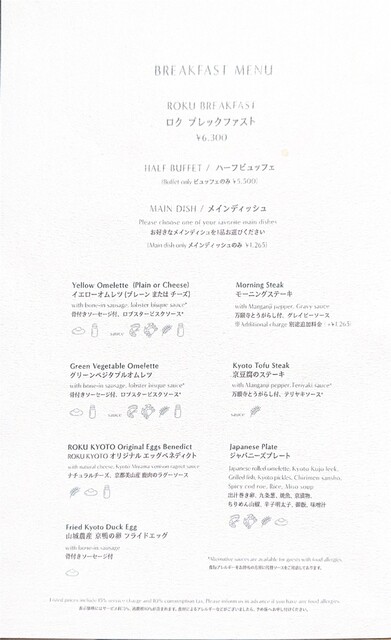 BREAKFAST MENU
ROKU BREAKFAST
ロク ブレックファスト
¥6,300
HALF BUFFET / ハーフビュッフェ
(Buffet only ビュッフェのみ ¥5,500)
MAIN DISH / メインディッシュ
Please choose one of your favorite main dishes
お好きなメインディッシュを1品お選びください
(Main dish only メインディッシュのみ ¥1,265)
Yellow Omelette (Plain or Cheese)
イエローオムレツ (プレーン または チーズ)
with bone-in sausage, lobster bisque sauce*
骨付きソーセージ付、ロブスタービスクソース*
sauce
Morning Steak
モーニングステーキ
with Manganji pepper, Gravy sauce
万願寺とうがらし付、グレイビーソース
※Additional charge 別途追加料金 : +¥1,265
Green Vegetable Omelette
グリーンベジタブルオムレツ
with bone-in sausage, lobster bisque sauce*
骨付きソーセージ付、ロブスタービスクソース*
sauce
Kyoto Tofu Steak
京豆腐のステーキ
with Manganji pepper, Teriyaki sauce*
万願寺とうがらし付、テリヤキソース*
sauce
ROKU KYOTO Original Eggs Benedict
ROKU KYOTO オリジナル エッグベネディクト
with natural cheese, Kyoto Miyama venison ragout sauce
ナチュラルチーズ、京都美山産 鹿肉のラグーソース
Japanese Plate
ジャパニーズプレート
Japanese rolled omelette, Kyoto Kujo leek,
Grilled fish, Kyoto pickles, Chirimen sansho,
Spicy cod roe, Rice, Miso soup
出汁巻き卵、九条葱、焼魚、京漬物、
ちりめん山椒、辛子明太子、御飯、味噌汁
Fried Kyoto Duck Egg
山城農産 京鴨の卵 フライドエッグ
with bone-in sausage
骨付きソーセージ付
*Alternative sauces are available for guests with food allergies.
Listed prices include 15% service charge and 10% consumption tax. Please inform us in advance if you have any food allergies.